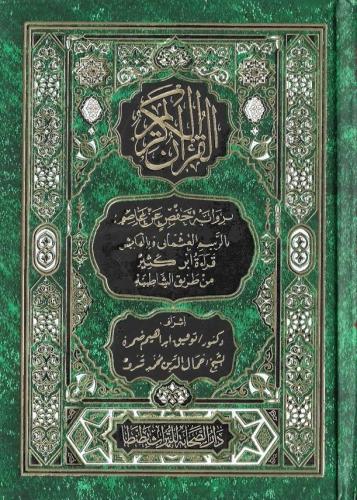 القرآن الكريم
برواية حفص عن عاصم
بالرسم العثماني وبالهامش
قراءة ابن كثير
من طريق الشاطبية
إشراف
دكتور/ توفيق إبراهيم ضمرة
الشيخ/ جمال الدين محمد شرف
دار الصحابة للتراث بطنطا